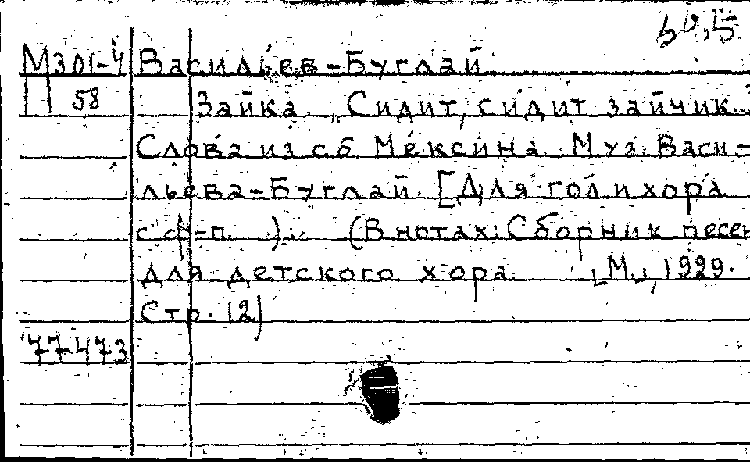 60,5
М301-4 Васильев-Буглай.
П 58 Зайка „Сидит, сидит зайчик...
Слова из сб. Мексина. Муз. Васи-
льева-Буглай. [Для гол. и хора
с ф-п. ). (В нотах: Сборник песен
для детского хора. М., 1929.
Стр. 12)
77473